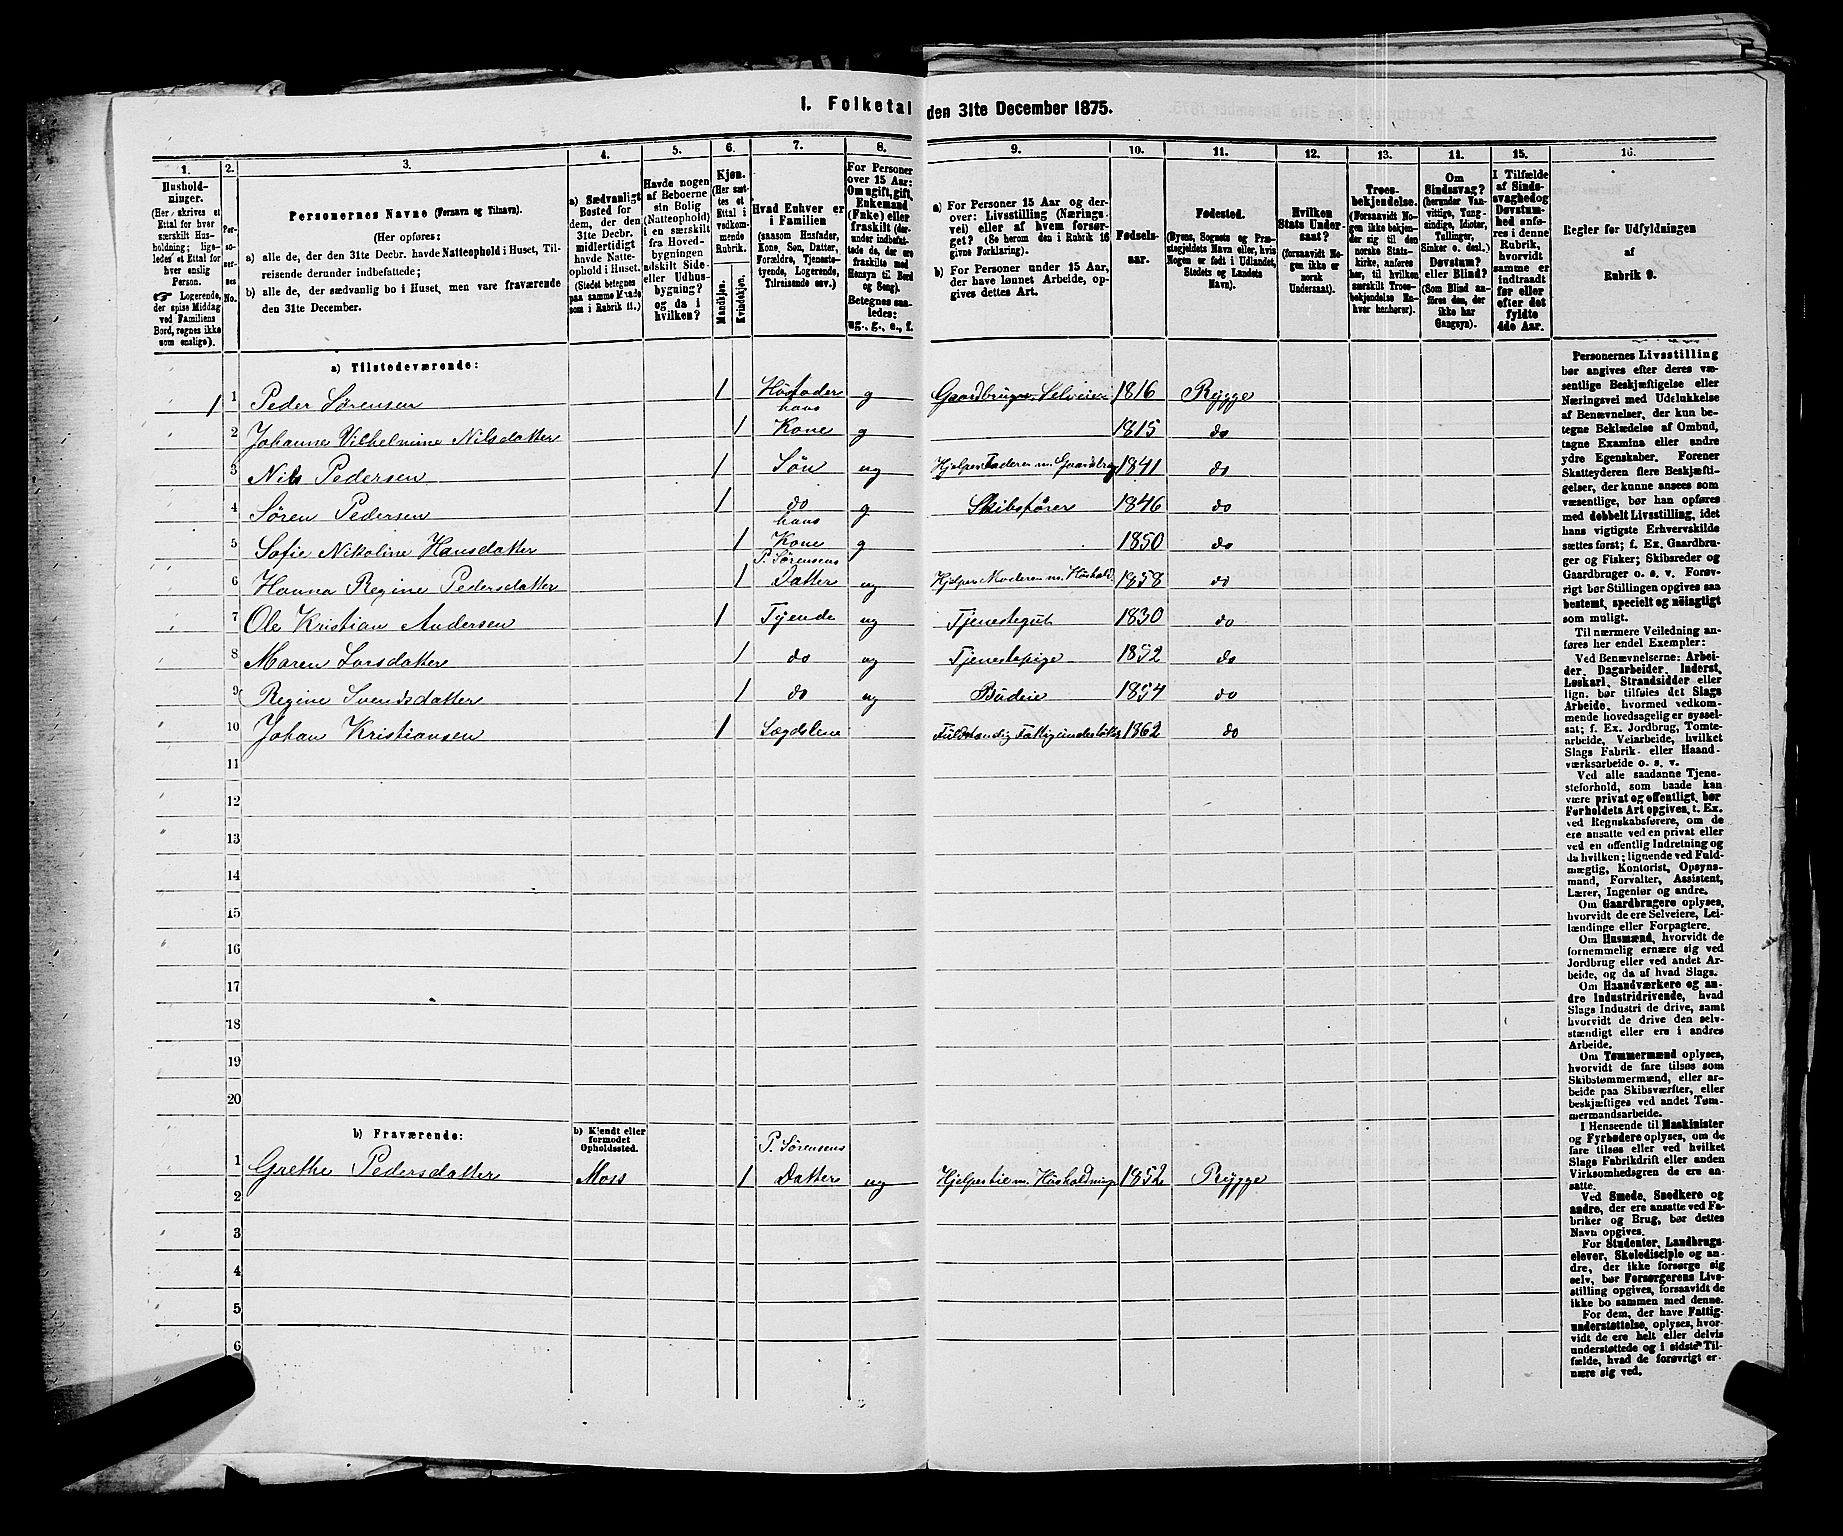 1. Folketal den 31te December 1875.
1. 2. 3. 4. 5. 6. 7. 8. 9. 10. 11. 12. 13. 14. 15. 16.
Husholdninger.
(Her skrives et
Ettal for hver
særskilt Husholdning;
ligeledes et Ettal for
hver enslig
Person.
Logerende,
der spise Middag
ved Familiens
Bord, regnes ikke
som enslige).
Personernes No.
Personernes Navne (Fornavn og Tilnavn).
(Her opføres:
a) alle de, der den 31te Decbr. havde Natteophold i Huset, Tilreisende derunder indbefattede;
b) alle de, der sædvanlig bo i Huset, men vare fraværende
den 31te December.
a) Sædvanligt
Bosted for
dem, der den
31te Decbr.
midlertidigt
havde Natteophold i Huset.
(Stedet betegnes
paa samme Maade
som i Rubrik 11.)
Havde nogen
af Beboerne
sin Bolig
(Natteophold)
i en særskilt
fra Hovedbygningen
adskilt Side-
eller Udhusbygning?
og da i
hvilken?
Kjøn.
(Her sættes et
Ettal i
vedkommende
Rubrik.
Mandkjøn.
Kvindekjøn.
Hvad Enhver er
i Familien
(saasom Husfader,
Kone, Søn, Datter,
Forældre, Tjenestetyende, Logerende,
Tilreisende osv.)
For Personer
over 15 Aar:
Om ugift, gift,
Enkemand
(Enke) eller
fraskilt (derunder indbefattede de, der ere
fraskilte med
Hensyn til Bord
og Seng).
Betegnes saaledes:
ug., g., e., f.
a) For Personer 15 Aar og derover: Livsstilling (Næringsvei) eller af hvem forsørget? (Se herom den i Rubrik 16
givne Forklaring).
b) For Personer under 15 Aar,
der have lønnet Arbeide, opgives dettes Art.
Fødselsaar.
Fødested.
(Byens, Sognets og Præstegjeldets Navn eller, hvis
Nogen er født i Udlandet,
Stedets og Landets
Navn).
Hvilken
Stats Undersaat?
(forsaavidt Nogen ikke er
norsk
Undersaat).
Troesbekjendelse.
(Forsaavidt Nogen ikke bekjender sig til den
norske Statskirke, anføres
her, til hvilken
særskilt Troesbekjendelse Enhver henhører).
Om
Sindssvag?
(herunder Vanvittige, Tungsindige, Idioter,
Tullinger,
Sinker o. desl.)
Døvstum?
eller Blind?
(Som Blind anføres den, der
ikke har
Gangsyn).
I Tilfælde
af Sindssvaghed og
Døvstumhed anføres i denne
Rubrik,
hvorvidt
samme er
indtraadt
før eller
efter det
fyldte
4de Aar.
Regler for Udfyldningen
af
Rubrik 9.
a) Tilstedeværende:
1 1 Peder Sørensen 1 Husfader g Gaardbruger Selveier 1816 Rygge
2 Johanne Vilhelmine Nilsdatter 1 hans Kone g 1815 do
3 Nils Pedersen 1 Søn ug Hjelper Faderen m. Gaardsbrug 1841 do
4 Søren Pedersen 1 do g Skibsfører 1846 do
5 Sofie Nikoline Hansdatter 1 hans Kone g 1850 do
6 Hanna Regine Pedersdatter 1 P. Sørensens Datter ug Hjelper Moderen m. Hushold. 1858 do
7 Ole Kristian Andersen 1 Tyende ug Tjenestegut 1830 do
8 Maren Larsdatter 1 do ug Tjenestepige 1852 do
9 Regine Svendsdatter 1 do ug Budeie 1854 do
10 Johan Kristiansen 1 Lægdslem Fuldstændig Fattigunderstøttet 1862 do
11
12
13
14
15
16
17
18
19
20
b) Fraværende:
b) Kjendt eller
formodet
Opholdssted.
1 Grethe Pedersdatter Moss 1 P. Sørensens Datter ug Hjelper til m. Husholdning 1852 Rygge
2
3
4
5
6
Personernes Livsstilling
bør angives efter deres væsentlige Beskjæftigelse eller
Næringsvei med Udelukkelse
af Benævnelser, der kun betegne Beklædelse af Ombud,
tagne Examina eller andre
ydre Egenskaber. Forener
Skatteyderen flere Beskjæftigelser, der kunne ansees som
væsentlige, bør han opføres
med dobbelt Livsstilling, idet
hans vigtigste Erhvervskilde
sættes først; f. Ex. Gaardbruger og Fisker; Skibsreder og
Gaardbruger o. s. v. Forøvrigt bør Stillingen opgives saa
bestemt, specielt og nöiagtigt
som muligt.
Til nærmere Veiledning anføres her endel Exempler:
Ved Benævnelserne: Arbeider, Dagarbeider, Inderst,
Løskarl, Strandsidder eller
lign. bør tilføies det Slags
Arbeide, hvormed vedkommende hovedsagelig er sysselsat; f. Ex. Jordbrug, Tomtearbeide, Veiarbeide, hvilket
Slags Fabrik- eller Haandværksarbeide o. s. v.
Ved alle saadanne Tjenesteforhold, som baade kan
være privat og offentligt, bør
Forholdets Art opgives, t. Ex.
ved Regnskabsførere, om de
ere ansatte ved en privat eller
ved en offentlig Indretning og
da hvilken; lignende ved Fuldmægtig, Kontorist, Opsynsmand, Forvalter, Assistent,
Lærer, Ingeniør og andre.
Om Gaardbrugere oplyses,
hvorvidt de ere Selveiere, Leilændinge eller Forpagtere.
Om Husmænd, hvorvidt de
fornemmelig ernære sig ved
Jordbrug eller ved andet Arbeide, og da af hvad Slags.
Om Haandværkere og andre Industridrivende, hvad
Slags Industri de drive, samt
hvorvidt de drive den selvstændigt eller ere i andres
Arbeide.
Om Tømmermænd oplyses,
hvorvidt de fare tilsøs som
Skibstømmermænd, eller arbeide paa Skibsværfter, eller
beskjæftiges ved andet Tømmermandsarbeide.
I Henseende til Maskinister
og Fyrbødere oplyses, om de
fare tilsøs eller ved hvilket
Slags Fabrikdrift eller anden
Virksomhedsgren de ere ansatte.
Ved Smede, Snedkere og
andre, der ere ansatte ved Fabriker og Brug, bør dettes
Navn opgives.
For Studenter, Landbrugselever, Skoledisciple og andre, der ikke forsørge sig
selv, bør Forsørgerens Livsstilling opgives, forsaavidt de
ikke bo sammen med denne.
For dem, der have Fattigunderstøttelse, oplyses, hvorvidt de ere helt eller delvis
understøttede og i sidste Tilfælde, hvad de forøvrigt ernære sig ved.